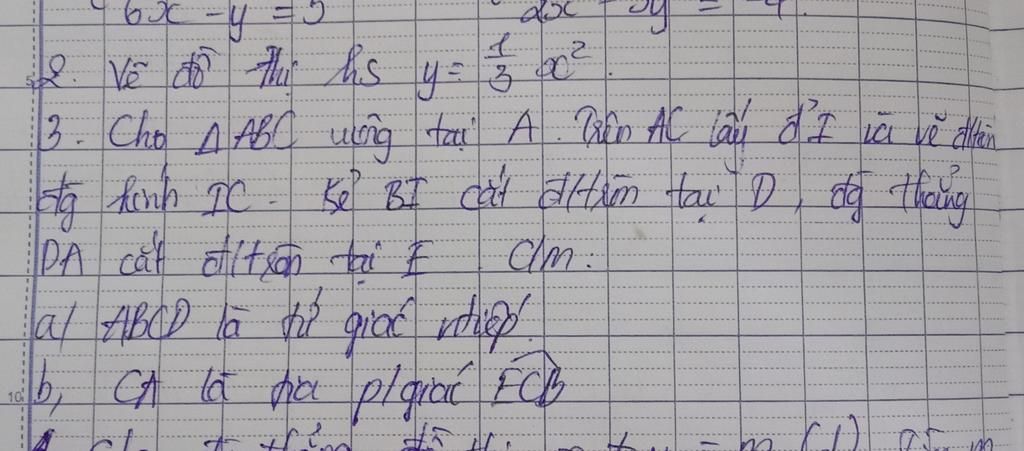 6x - y = 5 2x - 3y = -4
2. Vẽ đồ thị hs y = 1/3 x².
3. Cho △ABC uông tại A. Trên AC lấy đ' I và vẽ đ/tròn
đg kính IC. Kẻ BI cắt đ/tròn tại D, đg thẳng
DA cắt đ/tròn tại E C/m:
a/ ABCD là tứ giác ntiếp
b, CA là tia p/giác ECB